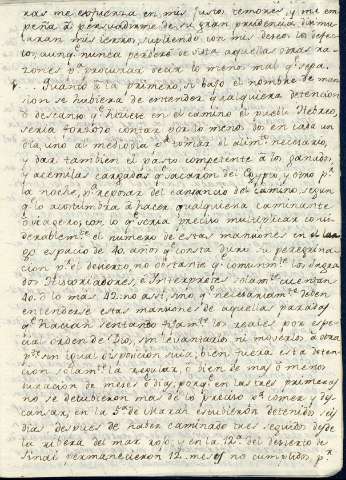 ras me esfuerza en mis justos temores, y me em
peña á persuadirme de su gran prudencia disimu
laran mis ierros, supliendo con mis deseos los defec
tos; aunq.e nunca perderé de vista aquellas otras ra
zones p.a procurar decir lo menos mal q.e sepa.
Quanto á lo primero, si bajo el nombre de man
sion se hubiera de entender qualquiera detencion
ó descanso q.e hiciese en el camino el pueblo Hebreo,
seria forzoso contar por lo menos dos en cada un
dia, uno al mediodia p.a tomar el alim.to necesario,
y dar tambien el pasto competente á los ganados,
y acemilas cargadas q.e sacaron del Egypto, y otro p.r
la noche, p.a reposar del cansancio del camino, segun
q.e lo acostumbra á hacer qualquiera caminante
ó viagero; con lo q.e seria preciso multiplicar consi
derablem.te el numero de estas mansiones en el
espacio de 40. años q.e consta duró su peregrina
cion p.r el desierto, no obstante q.e comunm.te los Sagra
dos Historiadores, é Interpretes solam.te cuentan
40. ó lo mas 42. no assi, sino q.e necesariam.te deben
entenderse estas mansiones de aquellas paradas
q.e hacian sentando fixam.te los reales por espe
cial orden de Dios, sin levantarlos ni moverlos á otra
p.te sin igual disposicion suia, bien fuera esta deten
cion solam.te la regular, ó bien de mas ó menos
duracion de meses ó dias; porq.e en las tres primeras
no se detubieron mas de lo preciso p.a comer y des
cansar, en la 5.a de Marah estubieron detenidos seis
dias despues de haber caminado tres seguidos desde
la ribera del mar roxo, y en la 12.a del desierto de
Sinai permanecieron 12. meses no cumplidos, p.r